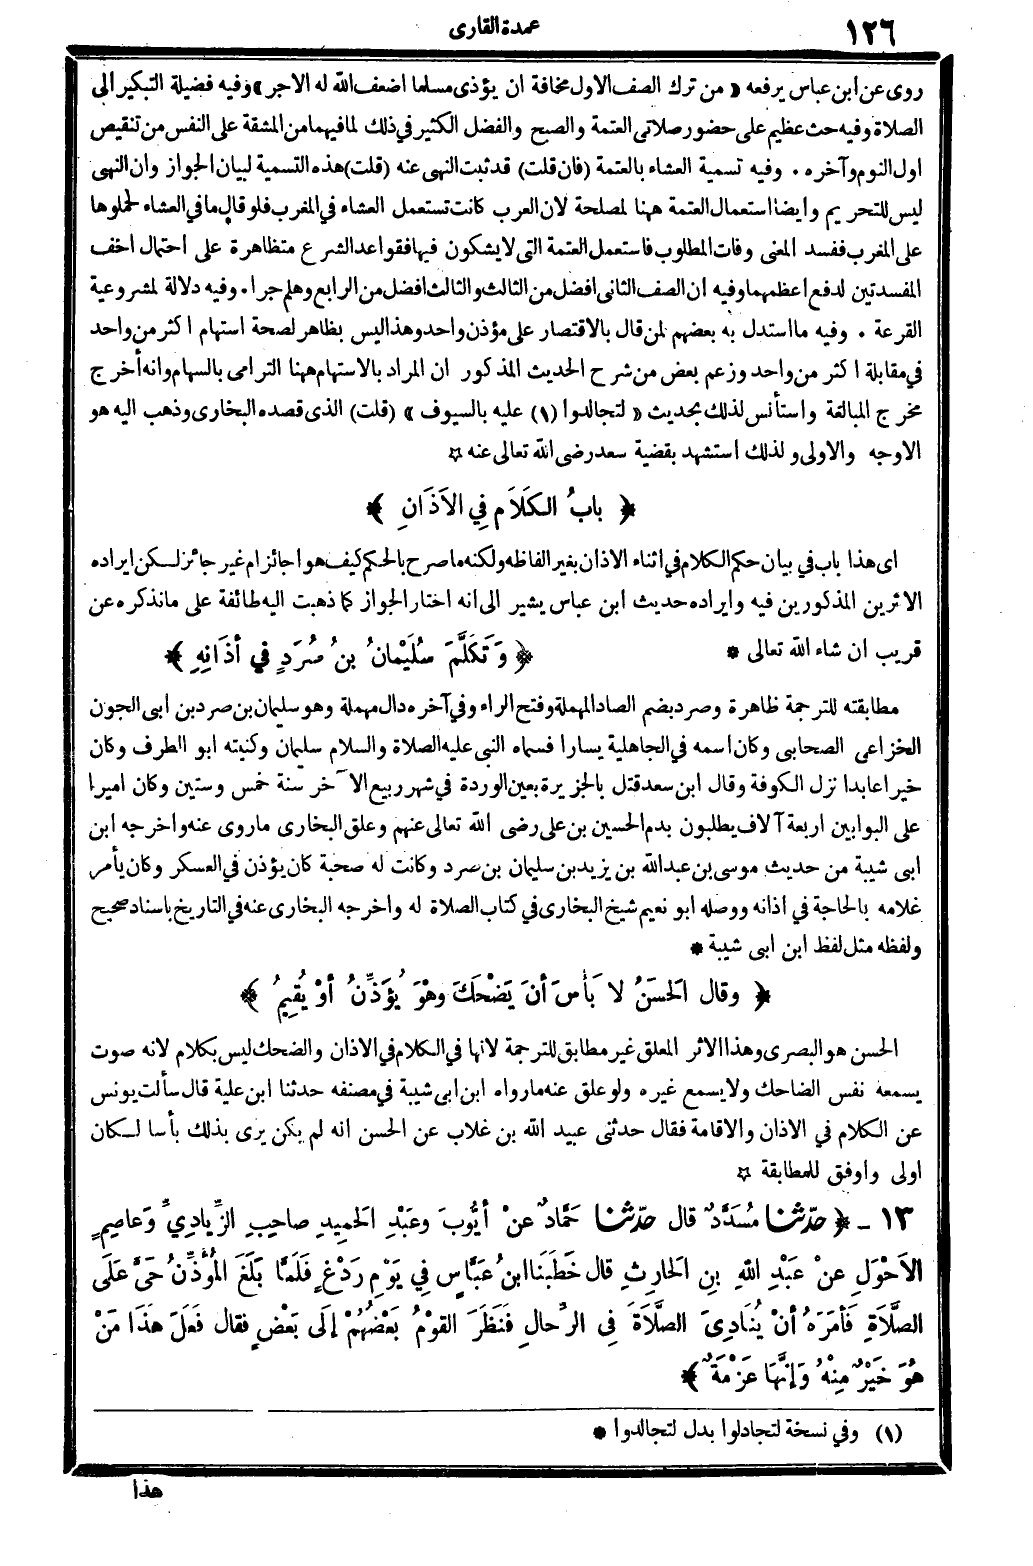 ١٢٦
عمدة القارى
روى عن ابن عباس يرفعه « من ترك الصف الاول مخافة ان يؤذى مسلما اضعف الله له الاجر » وفيه فضيلة التبكير الى
الصلاة وفيه حث عظيم على حضور صلاتى العتمة والصبح والفضل الكثير في ذلك لما فيهما من المشقة على النفس من تنقيص
اول النوم وآخره . وفيه تسمية العشاء بالعتمة (فان قلت) قد ثبت النهى عنه (قلت) هذه التسمية لبيان الجواز وان النهى
ليس للتحريم وايضا استعمال العتمة ههنا لمصلحة لان العرب كانت تستعمل العشاء في المغرب فلو قال ما في العشاء لحملوها
على المغرب ففسد المعنى وفات المطلوب فاستعمل العتمة التى لا يشكون فيها فقواعد الشرع متظاهرة على احتمال اخف
المفسدتين لدفع اعظمهما وفيه ان الصف الثانى افضل من الثالث والثالث افضل من الرابع وهلم جرا . وفيه دلالة لمشروعية
القرعة . وفيه ما استدل به بعضهم لمن قال بالاقتصار على مؤذن واحد وهذا ليس بظاهر لصحة استهام اكثر من واحد
في مقابلة اكثر من واحد وزعم بعض من شرح الحديث المذكور ان المراد بالاستهام ههنا الترامى بالسهام وانه أخرج
مخرج المبالغة واستأنس لذلك بحديث « لتجالدوا (١) عليه بالسيوف » (قلت) الذى قصده البخارى وذهب اليه هو
الاوجه والاولى ولذلك استشهد بقضية سعد رضى الله تعالى عنه ☆
﴿ بابُ الكَلَامِ فِي الأَذَانِ ﴾
اى هذا باب في بيان حكم الكلام في اثناء الاذان بغير الفاظه ولكنه ما صرح بالحكم كيف هو اجائز ام غير جائز لـكن ايراده
الاثرين المذكورين فيه وايراده حديث ابن عباس يشير الى انه اختار الجواز كما ذهبت اليه طائفة على ما نذكره عن
قريب ان شاء الله تعالى * ﴿ وَتَكَلَّمَ سُلَيْمانُ بنُ صُرَدٍ في أذَانِهِ ﴾
مطابقته للترجمة ظاهرة وصرد بضم الصاد المهملة وفتح الراء وفي آخره دال مهملة وهو سليمان بن صرد بن ابى الجون
الخزاعى الصحابى وكان اسمه في الجاهلية يسارا فسماه النبى عليه الصلاة والسلام سليمان وكنيته ابو الطرف وكان
خيرا عابدا نزل الكوفة وقال ابن سعد قتل بالجزيرة بعين الوردة في شهر ربيع الآخر سنة خمس وستين وكان اميرا
على التوابين اربعة آلاف يطلبون بدم الحسين بن على رضى الله تعالى عنهم وعلق البخارى ما روى عنه واخرجه ابن
ابى شيبة من حديث موسى بن عبد الله بن يزيد بن سليمان بن صرد وكانت له صحبة كان يؤذن في العسكر وكان يأمر
غلامه بالحاجة في اذانه ووصله ابو نعيم شيخ البخارى في كتاب الصلاة له واخرجه البخارى عنه في التاريخ باسناد صحيح
ولفظه مثل لفظ ابن ابى شيبة *
﴿ وقال الحَسَنُ لا بَأسَ أنَ يَضْحَكَ وهْوَ يُؤَذِّنُ أوْ يُقِيمُ ﴾
الحسن هو البصرى وهذا الاثر المعلق غير مطابق للترجمة لانها في الـكلام في الاذان والضحك ليس بكلام لانه صوت
يسمعه نفس الضاحك ولا يسمع غيره ولو علق عنه ما رواه ابن ابى شيبة في مصنفه حدثنا ابن علية قال سألت يونس
عن الكلام في الاذان والاقامة فقال حدثنى عبيد الله بن غلاب عن الحسن انه لم يكن يرى بذلك بأسا لـكان
اولى واوفق للمطابقة ☆
١٣ - ﴿ حدّثنا مُسَدَّدٌ قال حدّثنا حَمَّادٌ عنْ أيُّوبَ وعَبْدِ الحَمِيدِ صاحِبِ الزِّيادِيِّ وَعاصِمٍ
الأَحْوَلِ عنْ عَبْدِ اللهِ بنِ الحَارِثِ قال خَطَبَنَا ابنُ عَبَّاسٍ فِي يَوْمٍ رَدْغٍ فَلَمَّا بَلَغَ المُؤَذِّنُ حَيَّ عَلَى
الصَّلَاةِ فَأمَرَهُ أنْ يُنَادِىَ الصَّلَاةَ فِى الرِّحالِ فَنَظَرَ القوْمُ بَعْضُهُمْ إلَى بَعْضٍ فقال فَعَلَ هَذَا مَنْ
هُوَ خَيْرٌ مِنْهُ وَإنَّهَا عَزْمَةٌ ﴾
(١) وفي نسخة لتجادلوا بدل لتجالدوا *
هذا